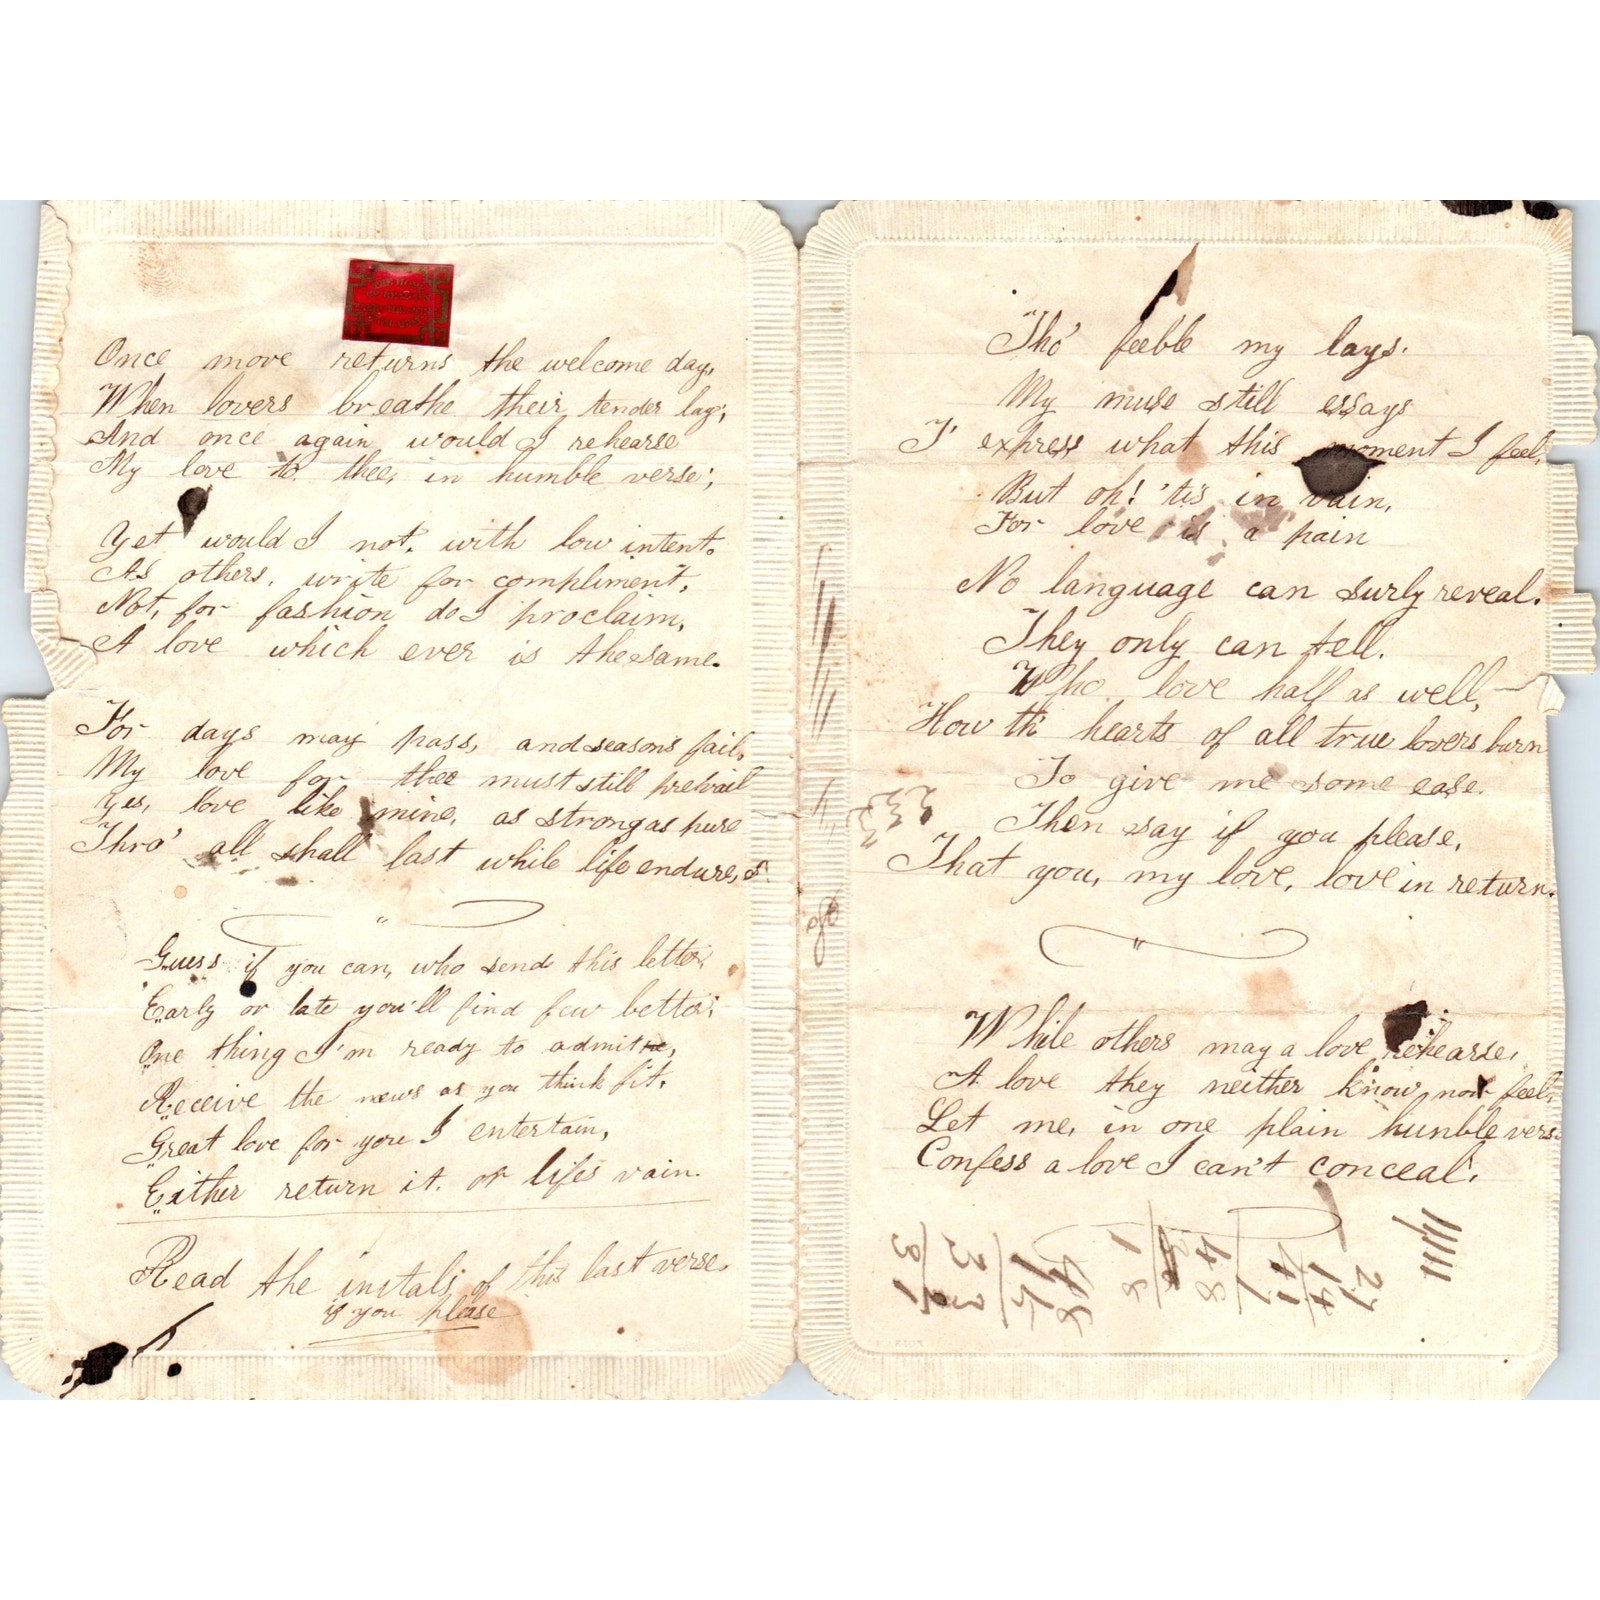 Once more returns the welcome day,
When lovers breathe their tender lay,
And once again would I rehearse
My love to thee, in humble verse;
Yet would I not, with low intent.
As others, write for compliment,
Not, for fashion do I proclaim,
A love which ever is the same.
For days may pass, and seasons fail,
My love for thee must still prevail
Yes, love like mine, as strong as pure
Thro' all shall last while life endures,
Guess if you can, who send this letter,
Early or late you'll find few better;
One thing I'm ready to admit,
Receive the news as you think fit,
Great love for you I entertain,
Either return it, or lifes vain.
Read the instals of this last verse,
if you please
Tho' feeble my lays.
My muse still essays
T' express what this moment I feel,
But oh! 'tis in vain,
For love is a pain
No language can surly reveal.
They only can tell.
Who love half as well,
How th' hearts of all true lovers burn
To give me some ease.
Then say if you please,
That you, my love, love in return.
While others may a love rehearse,
A love they neither know nor feel,
Let me, in one plain hunble vers
Confess a love I can't conceal.